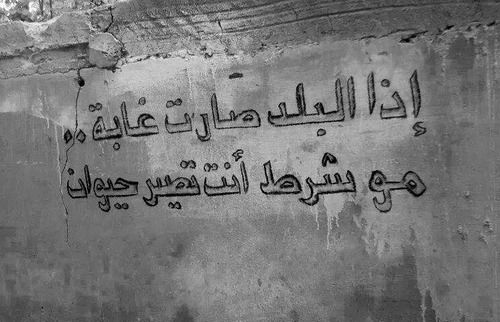 إذا البلد صارت غابة..
مو شرط أنت تصير حيوان